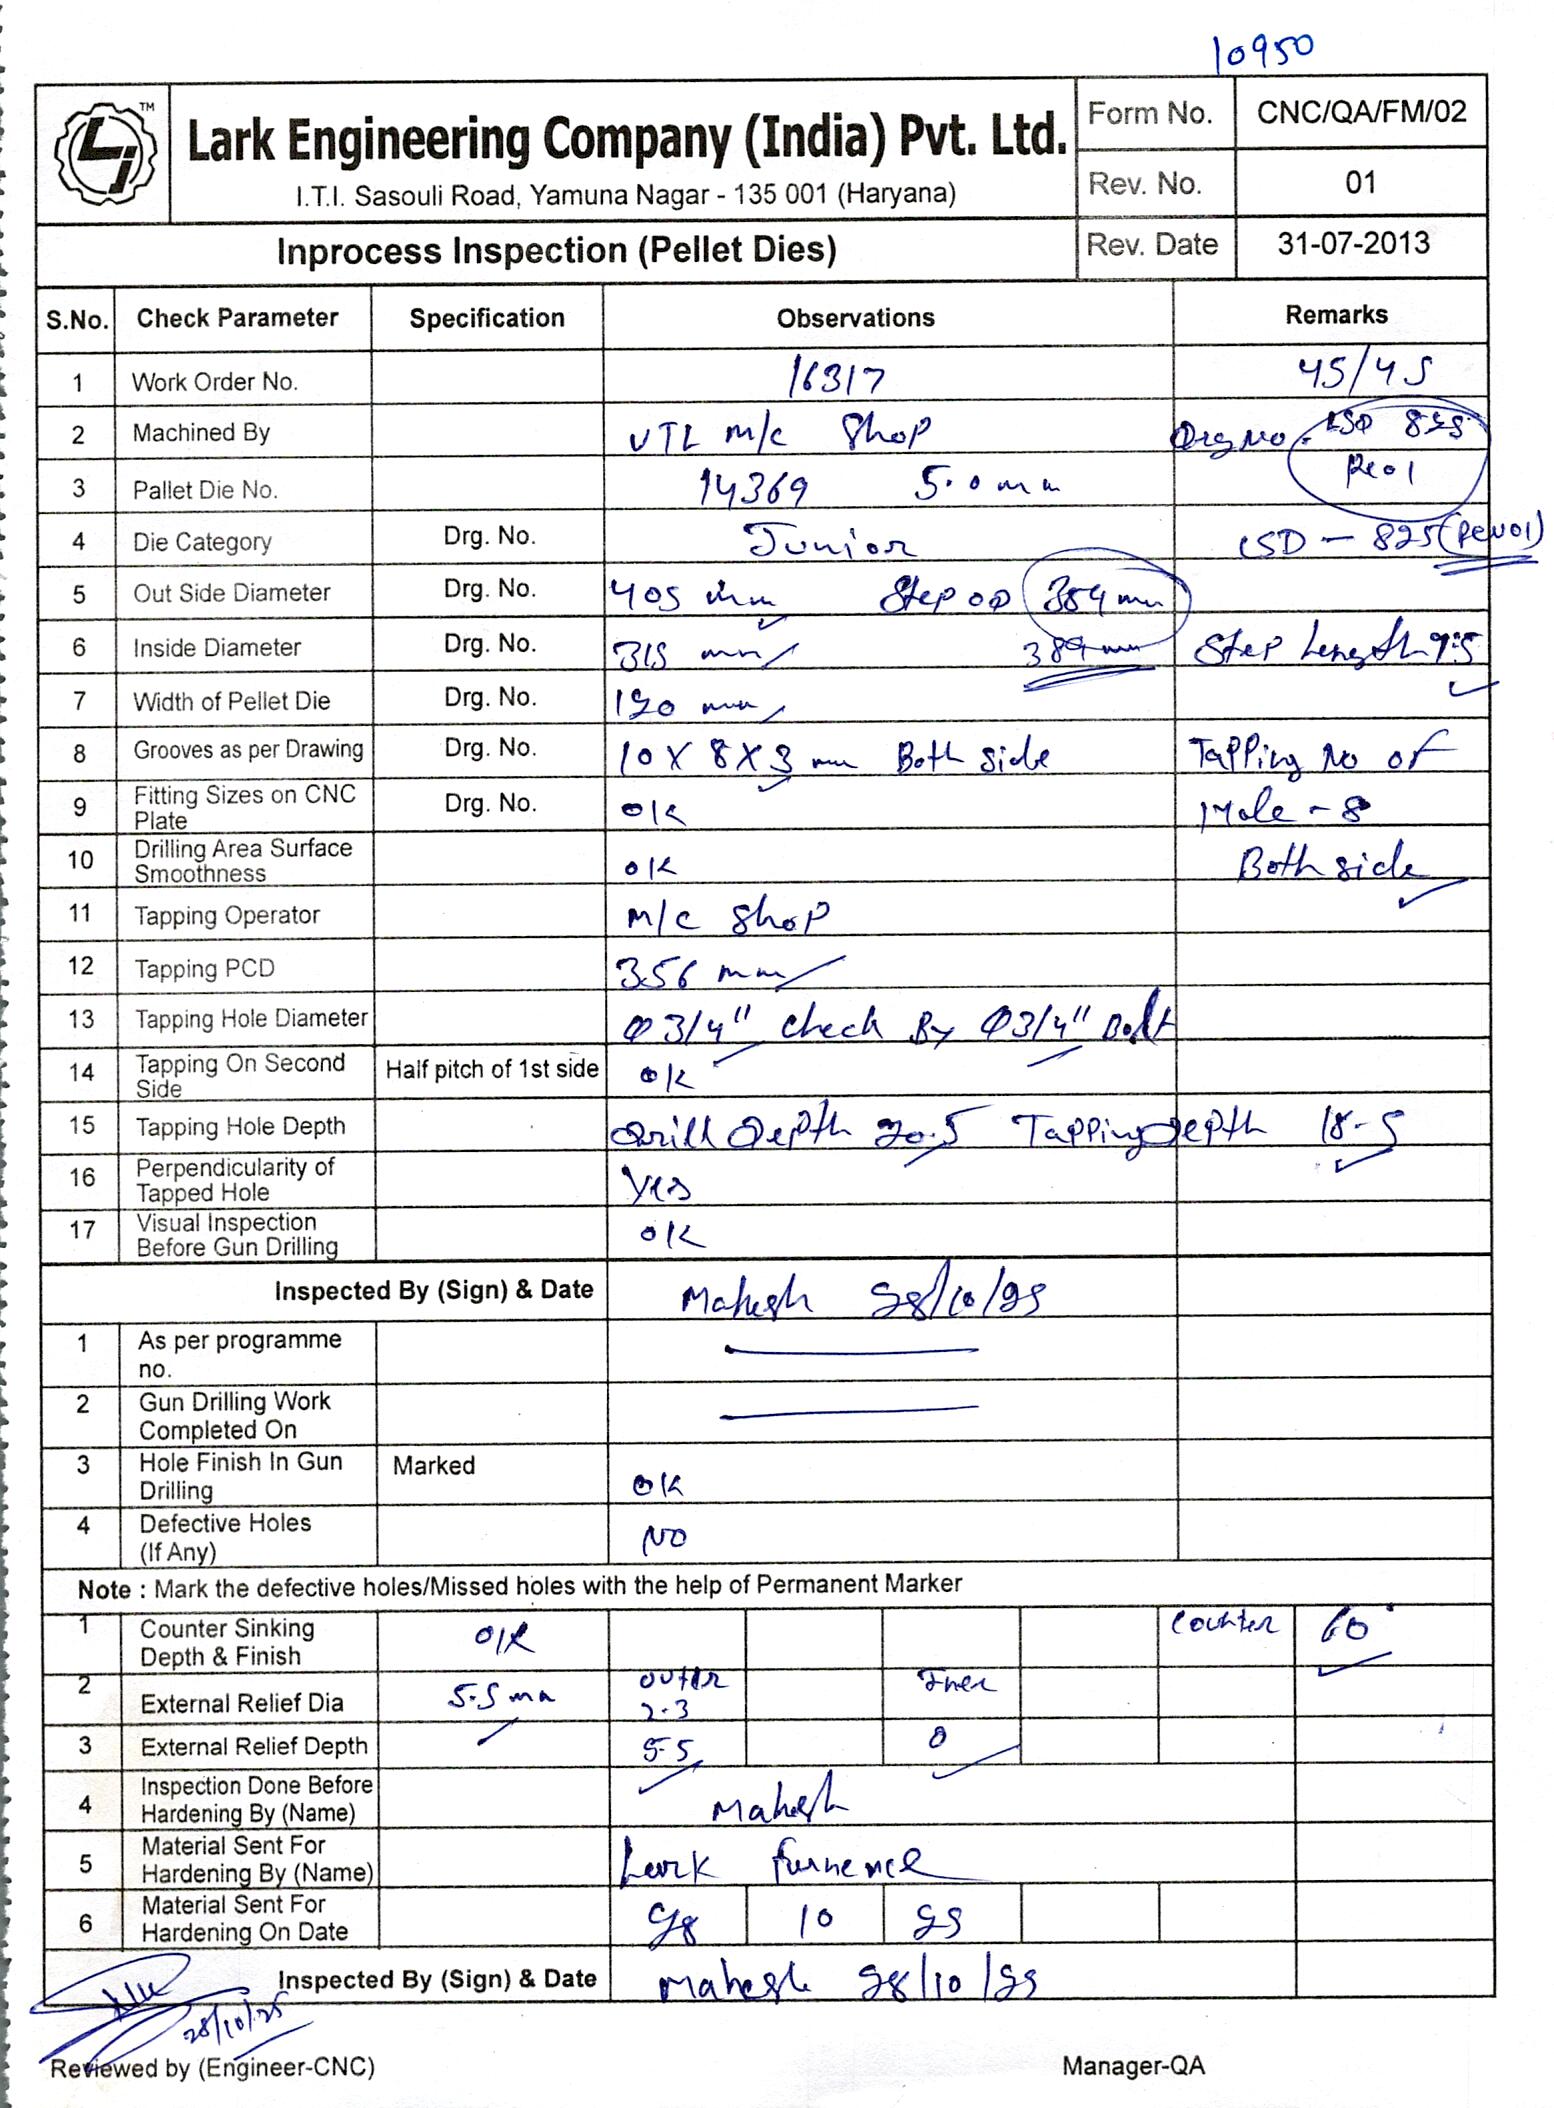 10950
TM
Lark Engineering Company (India) Pvt. Ltd.
I.T.I. Sasouli Road, Yamuna Nagar - 135 001 (Haryana)
Form No. CNC/QA/FM/02
Rev. No. 01
Inprocess Inspection (Pellet Dies)
Rev. Date 31-07-2013
S.No. Check Parameter Specification Observations Remarks
1 Work Order No. 16317 45/45
2 Machined By VTL m/c Shop Drg No. LSD 825
Re01
3 Pallet Die No. 14369 5.0 mm
4 Die Category Drg. No. Junior LSD - 825 (Rev01)
5 Out Side Diameter Drg. No. 405 mm Step OD 384 mm
6 Inside Diameter Drg. No. 315 mm 389 mm Step Length 9.5
7 Width of Pellet Die Drg. No. 190 mm
8 Grooves as per Drawing Drg. No. 10 X 8 X 3 mm Both side Tapping No of
9 Fitting Sizes on CNC Plate Drg. No. OK Hole - 8
10 Drilling Area Surface Smoothness OK Both side
11 Tapping Operator m/c Shop
12 Tapping PCD 356 mm
13 Tapping Hole Diameter Ø 3/4" check By Ø3/4" Bolt
14 Tapping On Second Side Half pitch of 1st side OK
15 Tapping Hole Depth Drill Depth 20.5 Tapping Depth 18.5
16 Perpendicularity of Tapped Hole Yes
17 Visual Inspection Before Gun Drilling OK
Inspected By (Sign) & Date Mahesh 28/10/25
1 As per programme no.
2 Gun Drilling Work Completed On
3 Hole Finish In Gun Drilling Marked OK
4 Defective Holes (If Any) NO
Note : Mark the defective holes/Missed holes with the help of Permanent Marker
1 Counter Sinking Depth & Finish OK Counter 60°
2 External Relief Dia 5.5 mm outer 2.3 Iner
3 External Relief Depth 5.5 0
4 Inspection Done Before Hardening By (Name) Mahesh
5 Material Sent For Hardening By (Name) Lark furnence
6 Material Sent For Hardening On Date 28 10 25
Inspected By (Sign) & Date Mahesh 28/10/25
28/10/25
Reviewed by (Engineer-CNC) Manager-QA